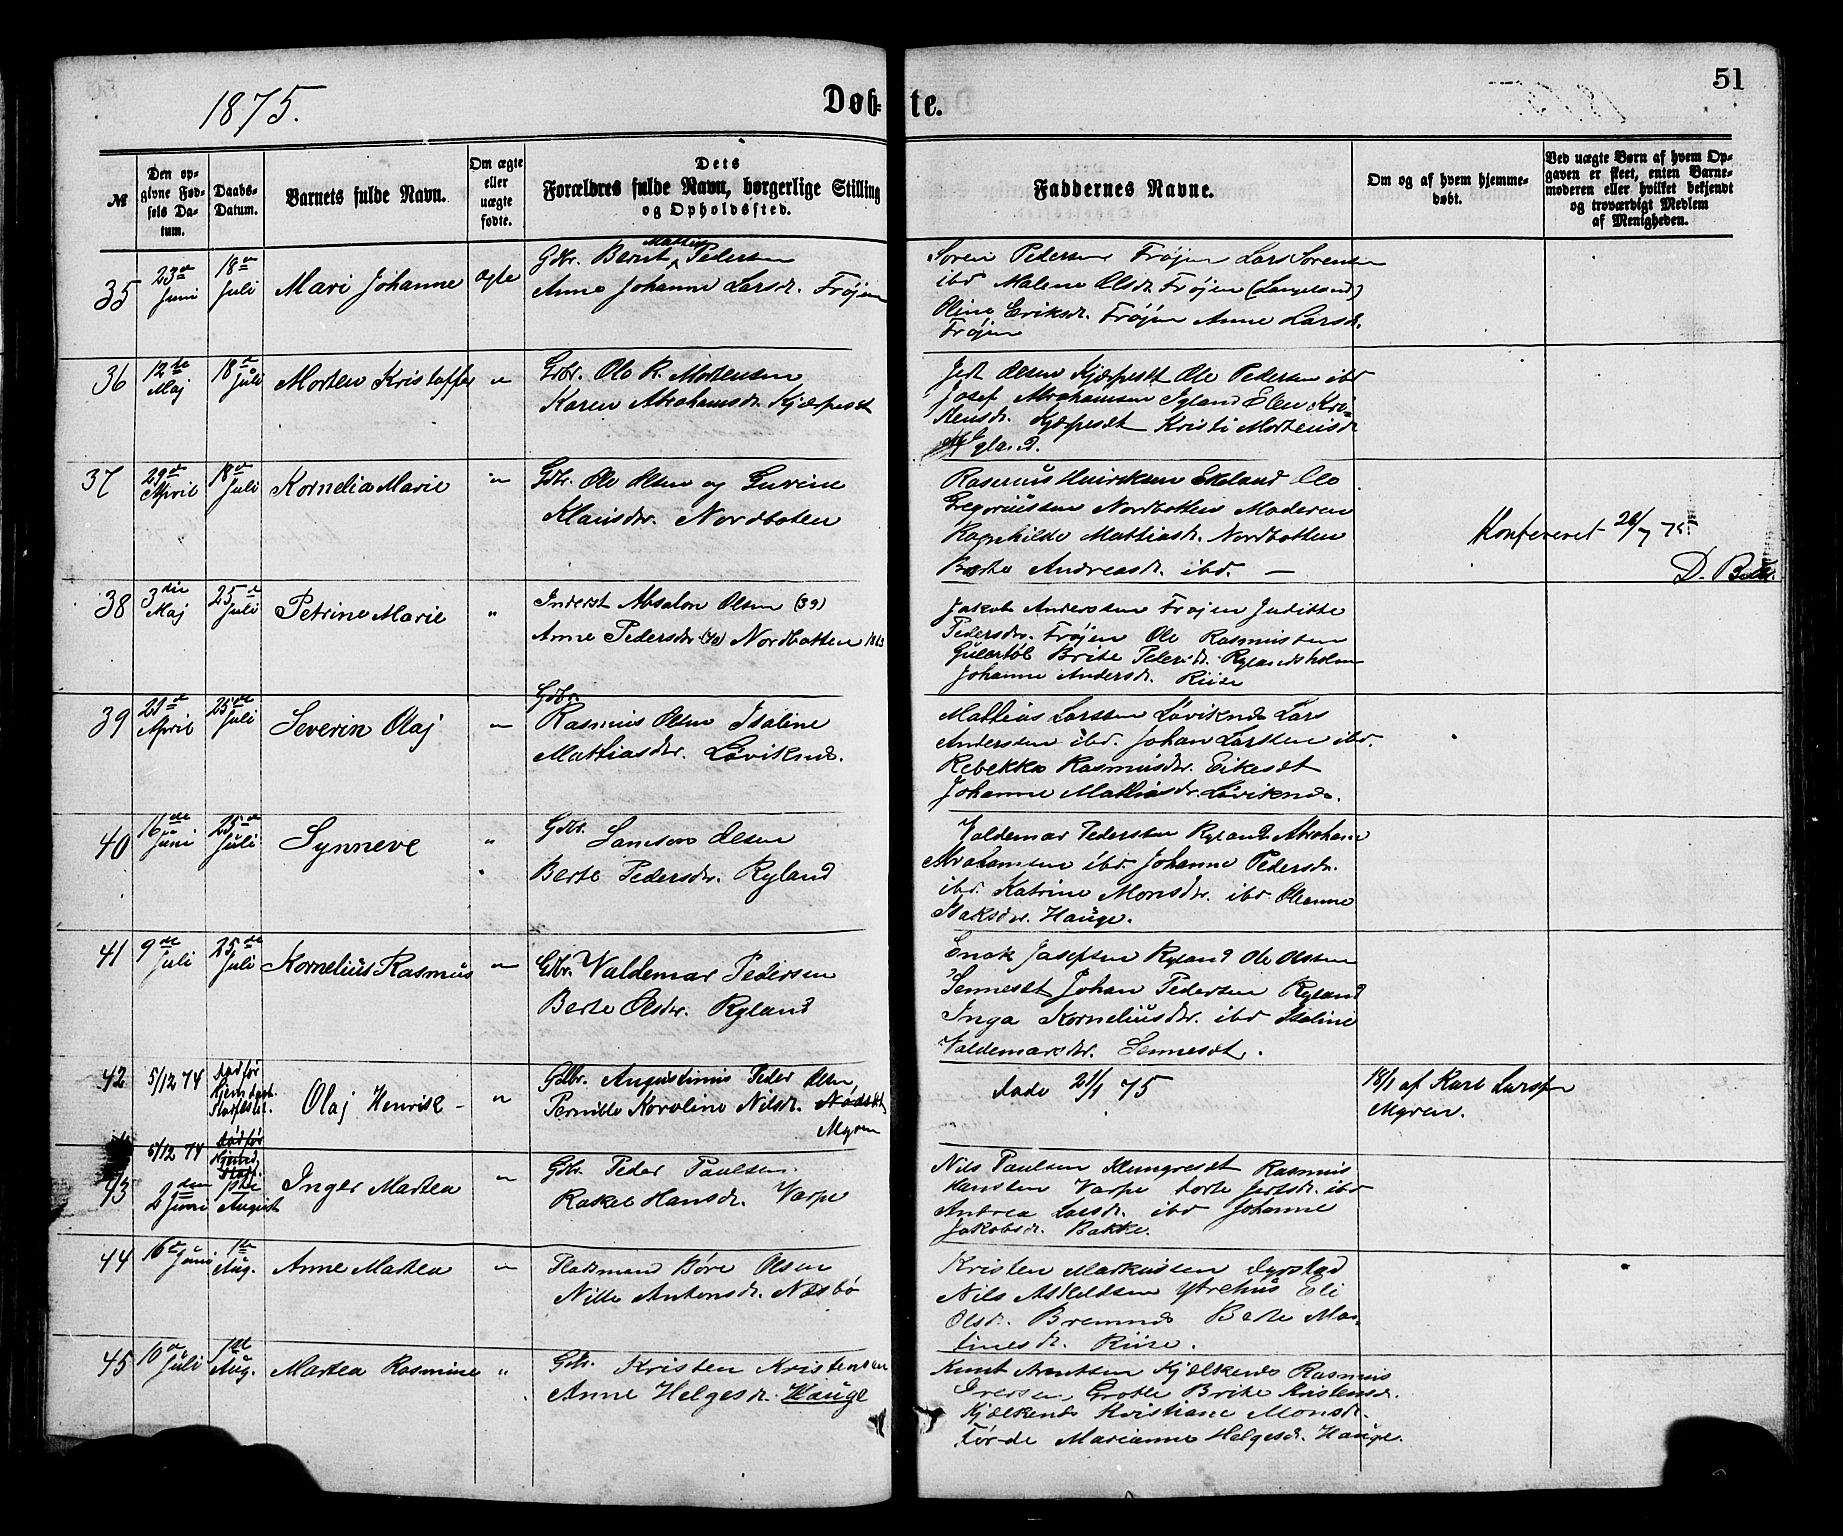 51
1875.
Døb- te.
№
Den opgivne Fødsels Datum.
Daabs-Datum.
Barnets fulde Navn.
Om ægte eller uægte fødte.
Dets Forældres fulde Navn, borgerlige Stilling og Opholdssted.
Faddernes Navne.
Om og af hvem hjemmedøbt.
Ved uægte Børn af hvem Opgaven er skeet, enten Barnemoderen eller hvilket bekjendt og troværdigt Medlem af Menigheden.
35 23de Juni 18de Juli Mari Johanne ægte
Gdbr. Bernt Mathias Pedersen
Anne Johanne Larsdr. Frøjen
Søren Pedersen Frøjen Lars Sørensen
ibd Malene Olsdr. Frøjen (Langeland)
Oline Eriksdr. Frøjen Anne Larsdr.
Frøjen
36 12te Maj 18de Juli Morten Kristoffer "
Gdbr. Ole R. Mortensen
Karen Abrahamsdr. Kjærpeset
Jert Olsen Kjærpeset Ole Pedersen ibd
Josef Abrahamsen Igland Elen Kristensdr. Kjærpeset Kristi Mortensdr
Igland.
37 29de April 18de Juli Kornelia Marie "
Gdbr. Ole Olsen og Gurine
Klausdtr. Nordbotten
Rasmus Henriksen Ekeland Ole
Gregoriussen Nordbotten Moderen
Ragnhilde Mathiasdr. Nordbotten
Berte Andreasdr. ibd. —
Konfereret 26/7 75.
D. 
38 3die Maj 25de Juli Petrine Marie "
Inderst Absalon Olsen (39)
Anne Pedersdtr (40) Nordbotten 1863
Jakob Anderssen Frøjen Juditte
Pedersdtr. Frøjen Ole Rasmussen
Gulestøl Brite Pedersdr. Rylandsholm
Johanne Andersdr. Riise
39 29de April 25de Juli Severin Olaj "
Gdbr.
Rasmus Olsen Isaline
Mathiasdtr. Løviknæs.
Mathias Larssen Løviknæs Lars
Anderssen ibd. Johan Larssen ibd.
Rebekka Rasmusdtr. Eikeset
Johanne Mathiasdr. Løviknæs.
40 16de Juni 25de Juli Synneve "
Gdbr. Samson Olsen
Berte Pedersdtr. Ryland
Valdemar Pederssen Ryland Abraham
Abrahamsen ibd. Johanne Pedersdr.
ibd. Katrine Monsdtr. ibd Oleanne
Isaksdtr. Hauge.
41 9de Juli 25de Juli Kornelius Rasmus "
Gdbr. Valdemar Pedersen
Berte Olsdtr. Ryland
Enok Josefsen Ryland Ole Olssen
Senneset Johan Pedersen Ryland
Inga Korneliusdtr. ibd Isaline
Valdemarsdtr. Senneset.
42 5/12 74 død før Hjemdaab. Stadfæstet. Olaj Henrik "
Gdbr. Augustinus Peder Olsen
Pernille Karoline Nilsdr.
Myren
døde 21/1 75
18/1 af Karl Larssen
Myren.
5/12 74 død før Hjemd. Stadf.
43 2den Juni 1ste August Inger Martea "
Gdbr. Peder Paulsen
Rakel Hansdr. Varpe
Nils Paulsen Klungreset Rasmus
Hansen Varpe Dorte Jertsdr. ibd
Andrea Larsdr. ibd Johanne
Jakobsdr. Bakke.
44 16de Juni 1ste Aug. Anne Martea "
Pladsmand Børe Olsen
Nille Antonsdr. Næsbø
Kristen Markussen Dyrstad
Nils Askeldsen Ytrehus Eli
Olsdr. Bremnes Berte Martinesdr. Riise.
45 10de Juli 1ste Aug. Martea Rasmine "
Gdbr. Kristen Kristensen
Anne Helgesdr. Hauge
Knut Arentsen Kjelkenæs Rasmus
Iversen Grotle Brite Kristensdr.
Kjelkenæs Kristiane Monsdr.
Førde Marianne Helgesdr. Hauge.